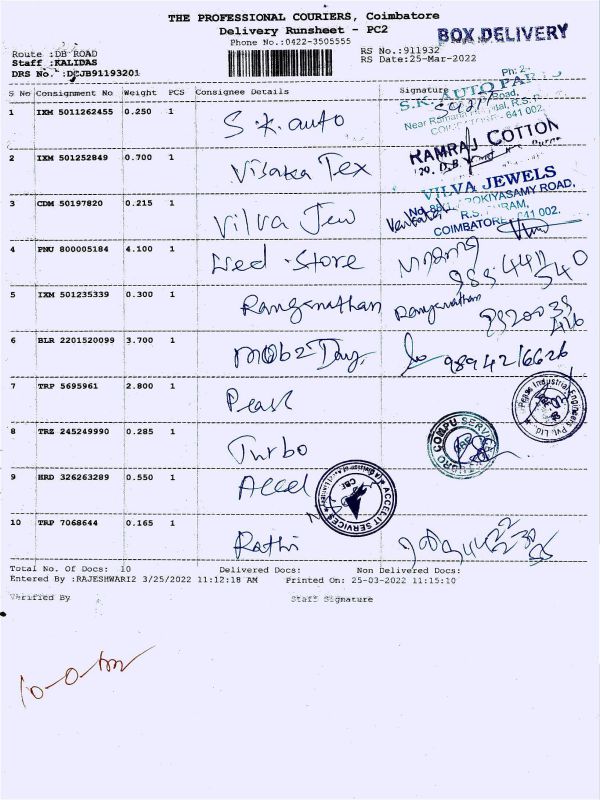 THE PROFESSIONAL COURIERS, Coimbatore
Delivery Runsheet - PC2
BOX DELIVERY
Phone No.:0422-3505555
Route :DB ROAD
RS No.:911932
Staff :KALIDAS
RS Date:25-Mar-2022
DRS No. :DCJB91193201
S No Consignment No Weight PCS Consignee Details Signature
Ph: 2
S.K. AUTO PARTS
1 IXM 5011262455 0.250 1 S.K. auto
Road,
Near Ramars Hospital, R.S. P
COIMBATORE - 641 002.
RAMRAJ COTTON
2 IXM 501252849 0.700 1 Visaka Tex
VILVA JEWELS
3 CDM 50197820 0.215 1 Vilva Jew
ROKIYASAMY ROAD,
R.S. PURAM,
COIMBATORE 641 002.
4 PNU 800005184 4.100 1 Wed .Store
5 IXM 501235339 0.300 1 Ranganathan Ranganathan
6 BLR 2201520099 3.700 1 mob2 Day 9894216626
7 TRP 5695961 2.800 1 Pearl
Industrial Engineers Pvt. Ltd.
8 TRZ 245249990 0.285 1 Turbo
COMPU SERVICE
9 HRD 326263289 0.550 1 Accel
ACCEL IT SERVICES
CBE
10 TRP 7068644 0.165 1 Rathi
Total No. Of Docs: 10 Delivered Docs: Non Delivered Docs:
Entered By :RAJESHWARI2 3/25/2022 11:12:18 AM Printed On: 25-03-2022 11:15:10
Verified By Staff Signature